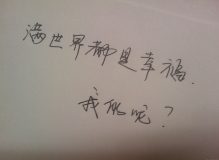 满世界都是幸福.
我们呢?